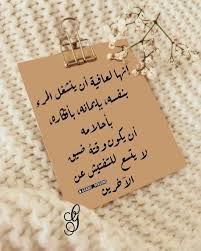 إنها لعافية أن ينشغل المرء
بنفسه، بإيمانه، بأفكاره،
بأحلامه
أن يكون وقته ضيق
لا يتسع للتفتيش عن
الآخرين